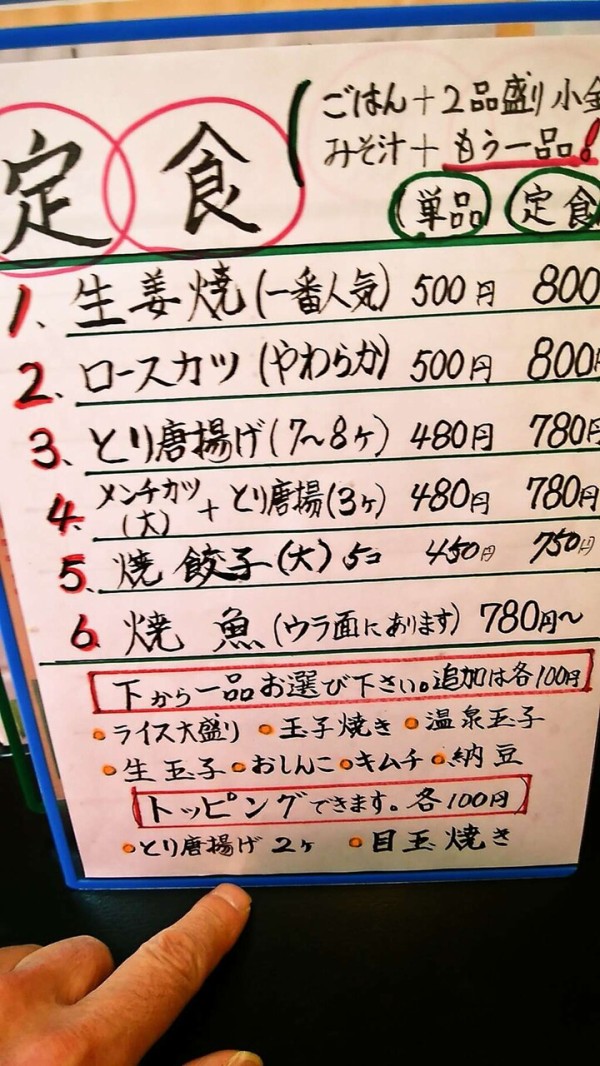 定食
ごはん＋２品盛り小
みそ汁＋もう一品!
単品 定食
1、生姜焼(一番人気) 500円 800
2、ロースカツ(やわらか) 500円 800円
3、とり唐揚げ(7〜8ヶ) 480円 780円
4、メンチカツ(大)＋とり唐揚(3ヶ) 480円 780円
5、焼餃子(大)5コ 450円 750円
6、焼魚(ウラ面にあります) 780円〜
下から一品お選び下さい。追加は各100円
・ライス大盛り ・玉子焼き ・温泉玉子
・生玉子 ・おしんこ ・キムチ ・納豆
トッピングできます。各100円
・とり唐揚げ2ヶ ・目玉焼き